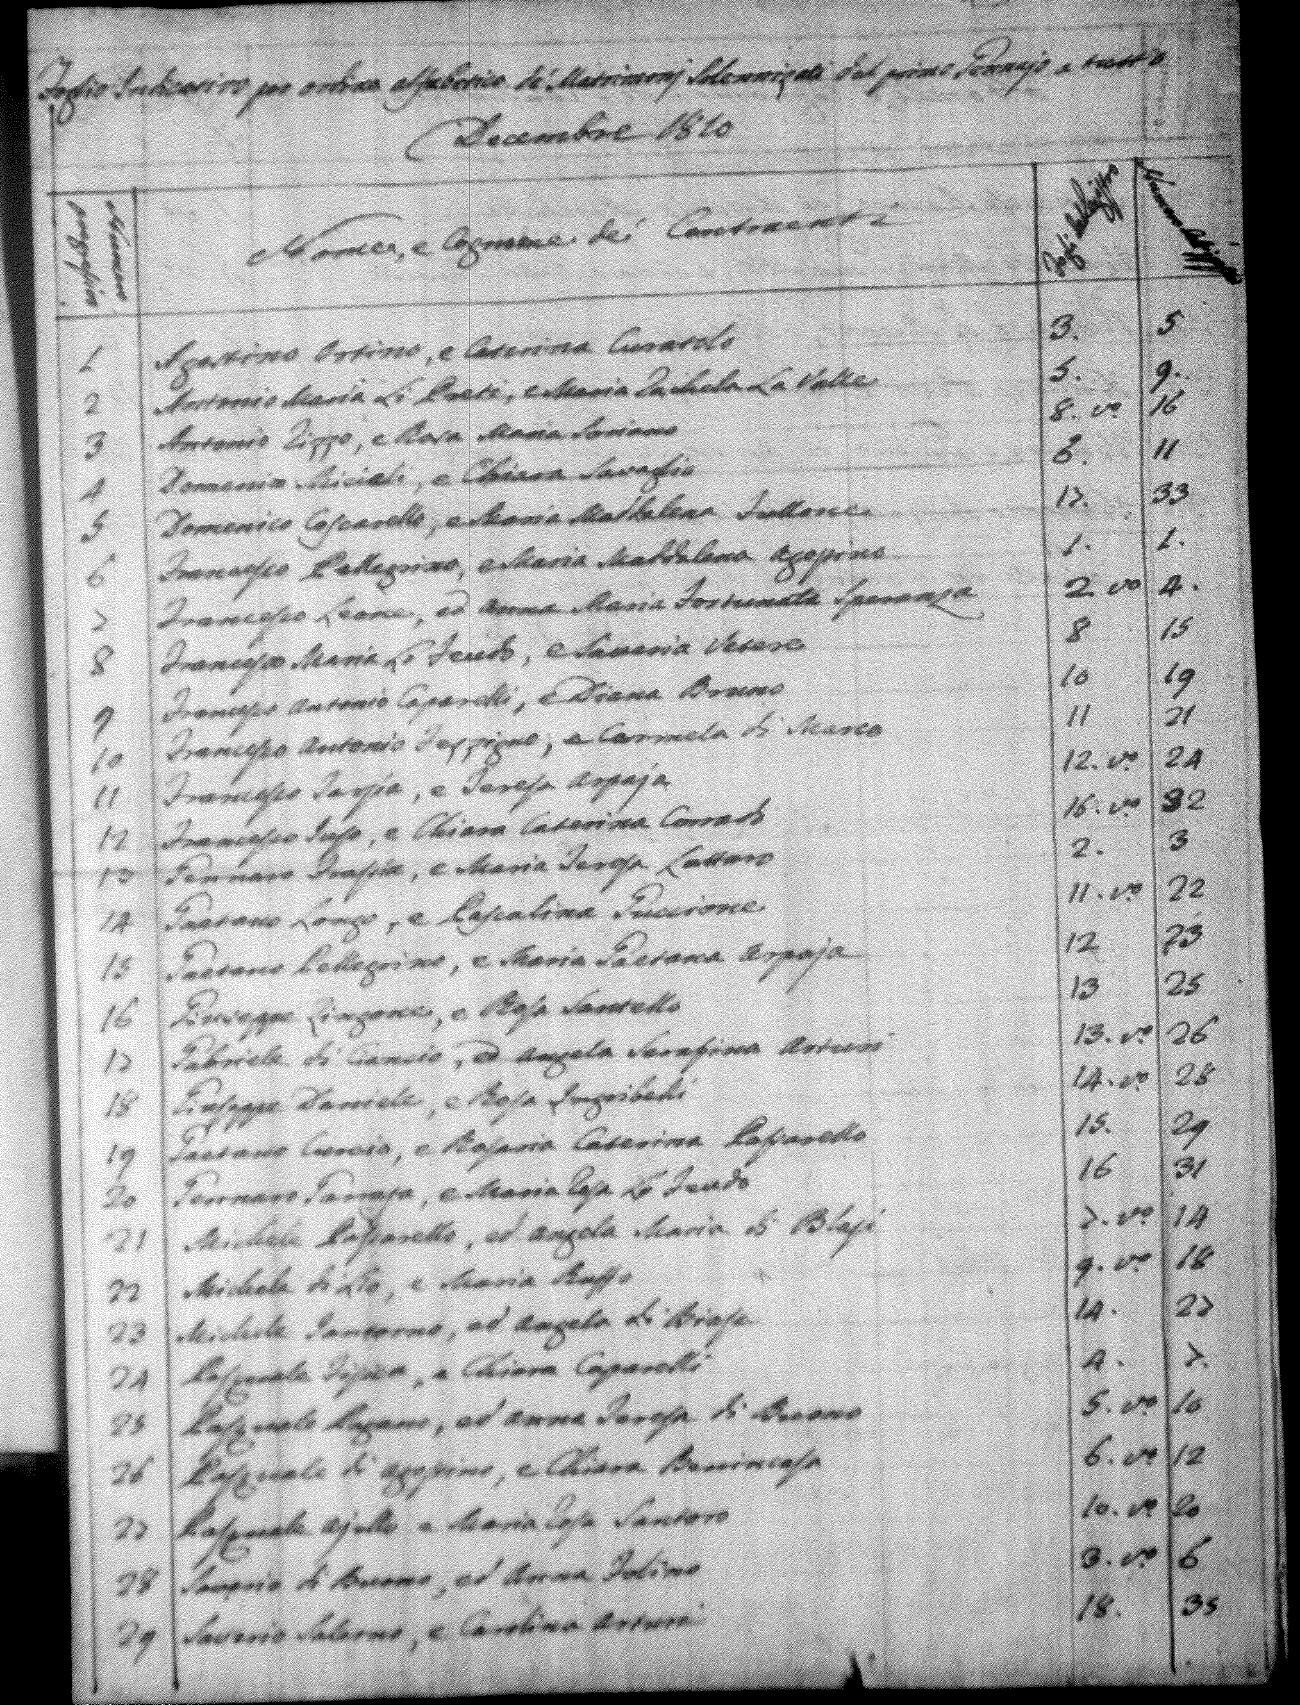 Foglio Indicativo per ordine alfabetico de' Matrimonj Solennizati dal primo Gennajo a tutto
Decembre 1810
Numero Nome, e Cognome dei Contraenti Fogli del Registro Numero
1 Agostino Ortino, e Caterina Curatolo 3. 5
2 Antonio Maria Li Preti, e Maria Michela La Valle 5. 9.
3 Antonio Zippo, e Rosa Maria Soriano 8. vo 16
4 Domenico Miciali, e Chiara Savaglio 6. 11
5 Domenico Coscarello, e Maria Maddalena 17. 33
6 Francesco Pellegrino, e Maria Maddalena Agostino 1. 1.
7 Francesco Leone, ed Anna Maria Fortunata Speranza 2 vo 4.
8 Francesco Maria Lo Feudo, e Saveria Vetere 8 15
9 Francesco Antonio Caparelli, e Diana Bruno 10 19
10 Francesco Antonio, e Carmela di Marco 11 21
11 Francesco Tarsia, e Teresa Arpaja 12. vo 24
12 Francesco, e Chiara Caterina Corrado 16. vo 32
13 Gennaro, e Maria Teresa Lattaro 2. 3
14 Gaetano Longo, e Pascalina Guccione 11. vo 22
15 Gaetano Pellegrino, e Maria Gaetana Arpaja 12 23
16 Giuseppe Zingone, e Rosa Santello 13 25
17 Gabriele di Cancio, ed Angela Serafina Arturi 13. vo 26
18 Giuseppe Daniele, e Rosa 14. vo 28
19 Gaetano Curcio, e Rosaria Caterina Pascarello 15. 29
20 Gennaro, e Maria Rosa Lo Feudo 16 31
21 Michele Pascarello, ed Angela Maria di Blasi 7. vo 14
22 Michele di Lio, e Maria Ruffo 9. vo 18
23 Michele Santorno, ed Angela di Biase 14. 27
24 Pasquale, e Chiara Caparelli 4. 7.
25 Pasquale Pagano, ed Anna Teresa di Buono 5. vo 10
26 Pasquale di Agostino, e Chiara Benincasa 6. vo 12
27 Pasquale Ajello e Maria Rosa Santoro 10. vo 20
28 Saverio di Buono, ed Anna Folino 3. vo 6
29 Saverio Salerno, e Carolina Arturi 18. 35